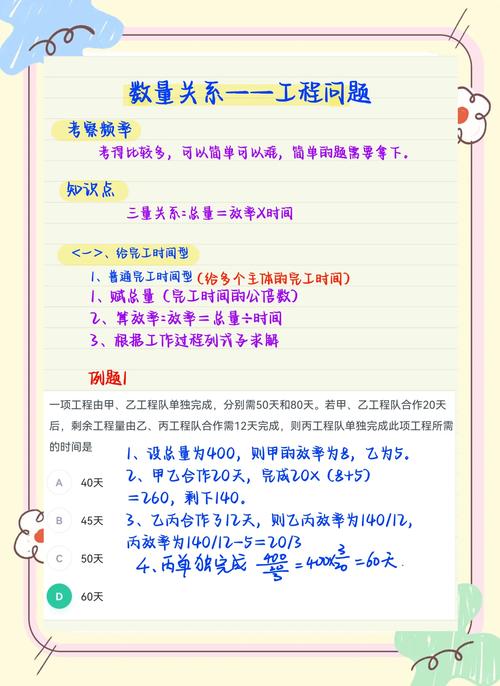 数量关系——工程问题
考察频率
考得比较多，可以简单可以难，简单的题需要拿下。
知识点
三量关系：总量＝效率X时间
<一>、给完工时间型
1、普通完工时间型（给多个主体的完工时间）
1、赋总量（完工时间的公倍数）
2、算效率：效率＝总量÷时间
3、根据工作过程列式子求解
例题1
一项工程由甲、乙工程队单独完成，分别需50天和80天。若甲、乙工程队合作20天
后，剩余工程量由乙、丙工程队合作需12天完成，则丙工程队单独完成此项工程所需
的时间是
1、设总量为400，则甲的效率为8，乙为5。
2、甲乙合作20天，完成20X（8+5）
＝260，剩下140。
3、乙丙合作了12天，则乙丙效率为140/12，
丙效率为140/12-5＝20/3
4、丙单独完成 400/(20/3)＝400×3/20＝60天.
A 40天
B 45天
C 50天
D 60天